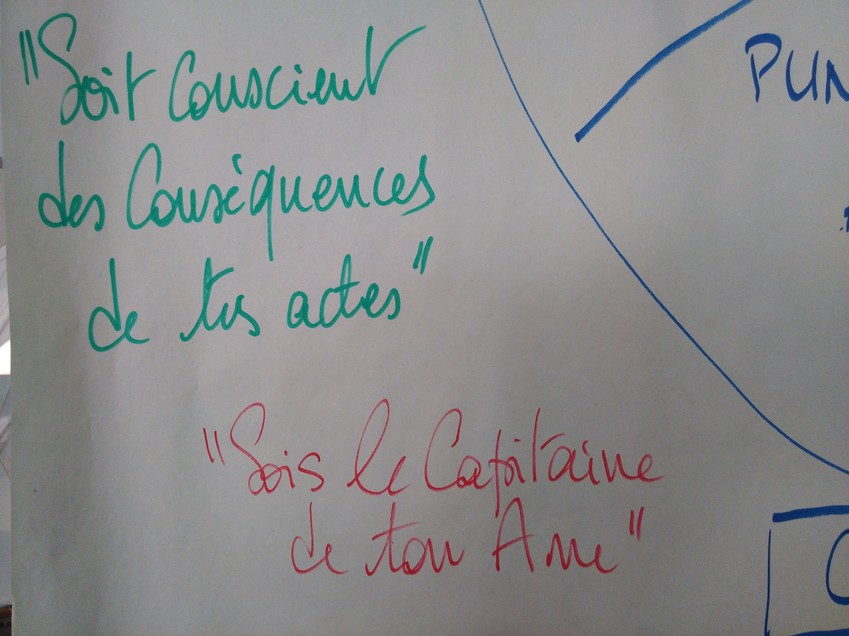 "Soit Conscient
des Conséquences
de tes actes"
"Sois le Capitaine
de ton Ame"
PUN